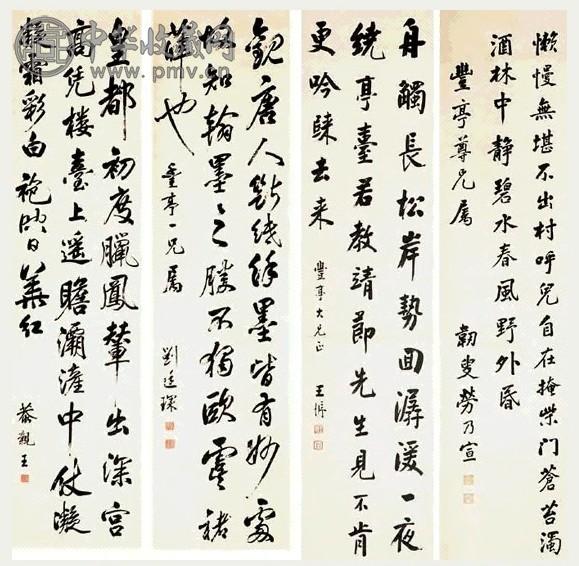 懶慢無堪不出村呼兒自在掩柴門蒼苔濁
酒林中静碧水春風野外昏
豐亭尊兄屬
韌叟勞乃宣
舟觸長松岸勢回潺湲一夜
繞亭臺若教靖節先生見不肯
更吟歸去来
豐亭大兄正
王垿
觀唐人斷紙餘墨皆有妙處
故知翰墨之勝不獨歐虞褚
薛也
豐亭一兄屬
劉廷琛
皇都初度臘鳳輦出深宮
高凭樓臺上遥瞻灞滻中仗凝
霜彩白袍映日華紅
恭親王
中华收藏网
www.pmv.cn